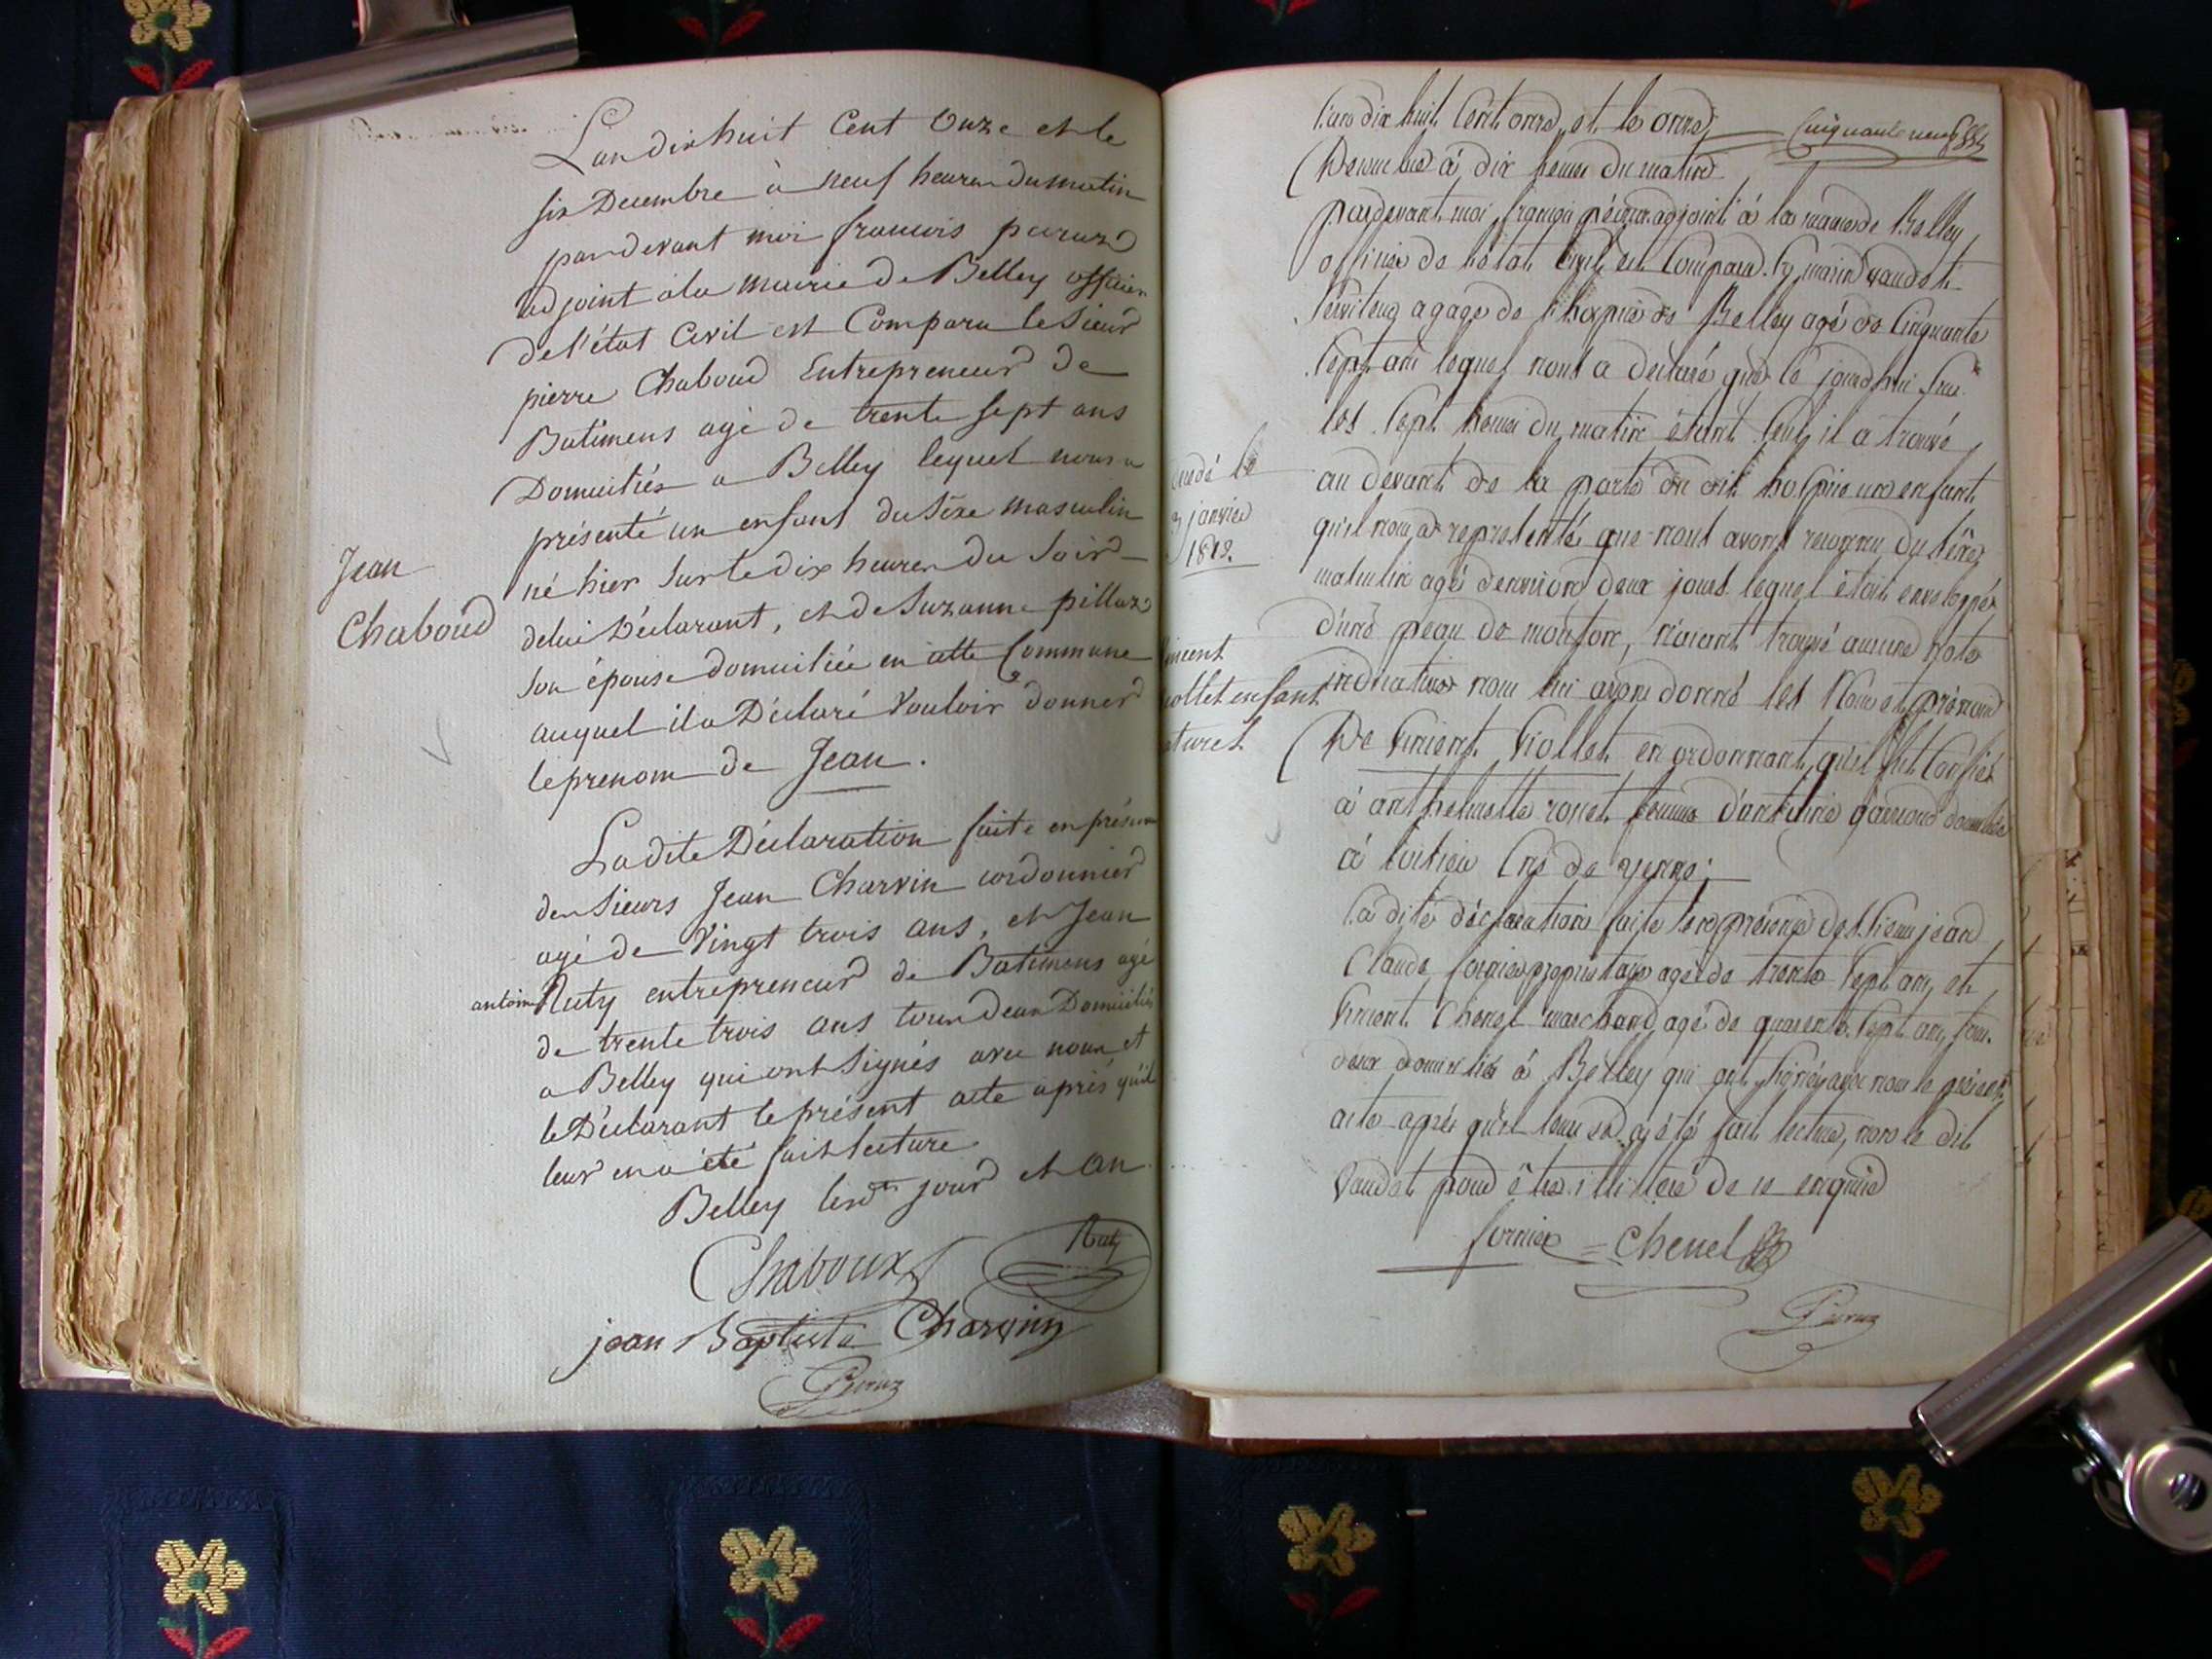 L'an dix huit Cent Onze et le
six Decembre à neuf heures du matin
pardevant moi francois peruz
adjoint a la mairie de Belley officier
de l'état Civil est Comparu le Sieur
pierre Chaboud Entrepreneur de
Batimens agé de trente sept ans
Domiciliés a Belley lequel nous a
présenté un enfant du Sexe masculin
né hier Sur le dix heures du Soir
de lui Déclarant, et de Suzanne pillaz
Son épouse domiciliée en cette Commune
auquel il a Déclaré Vouloir donner
le prenom de Jean.
Jean
Chaboud
La dite Déclaration faite en présence
des Sieurs Jean Charvin cordonnier
agé de Vingt trois ans, et Jean
antoine Ruty entrepreneur de Batimens agé
de trente trois ans tous deux Domiciliés
a Belley qui ont Signés avec nous et
le Déclarant le présent acte après qu'il
leur en a été fait lecture
Belley les dts jour et an
Chaboux Ruty
jean Baptiste Charvin
Peruz
Cinquante neuf
L'an dix huit Cent onze et le onze
Decembre à dix heures du matin
pardevant moi françois péruz adjoint à la mairie de Belley
officier de l'état Civil est Comparu Sr. marin vaudet
Serviteur a gage de l'hospice de Belley agé de Cinquante
Sept ans lequel nous a déclaré que le jourd'hui Sur
les Sept heures du matin étant Seul il a trouvé
au devant de la porte du dit hospice un enfant
qu'il nous a representé que nous avons reconnu du Séxe
masculin agé d'environ deux jours lequel était enveloppé
d'une peau de mouton, n'aiant trouvé aucune Note
indicative nous lui avons donné les Nom et prénom
De Vincent Viollet en ordonnant qu'il fut Confié
à anthelmette ronet femme d'antoine domiciliée
à Loisieu Cne de yenne;
La dite déclaration faite en présence des Sieurs jean
Claude fornier propriétaire agé de trente Sept ans, et
Vincent Chenel marchand agé de quarente Sept ans, tous
deux domiciliés à Belley qui ont Signés avec nous le présent
acte après qu'il leur en a été fait lecture, non le dit
Vaudet pour être illitéré de ce enquis
le
janvier
1812.
Vincent
Viollet enfant
naturel
fornier = Chenel
Peruz